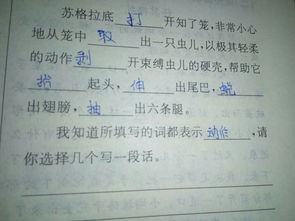 苏格拉底打开知了笼,非常小心
地从笼中取出一只虫儿,以极其轻柔
的动作剥开束缚虫儿的硬壳,帮助它
抬起头,伸出尾巴,
出翅膀,抽出六条腿。
我知道所填写的词都表示动作,请
你选择几个写一段话。